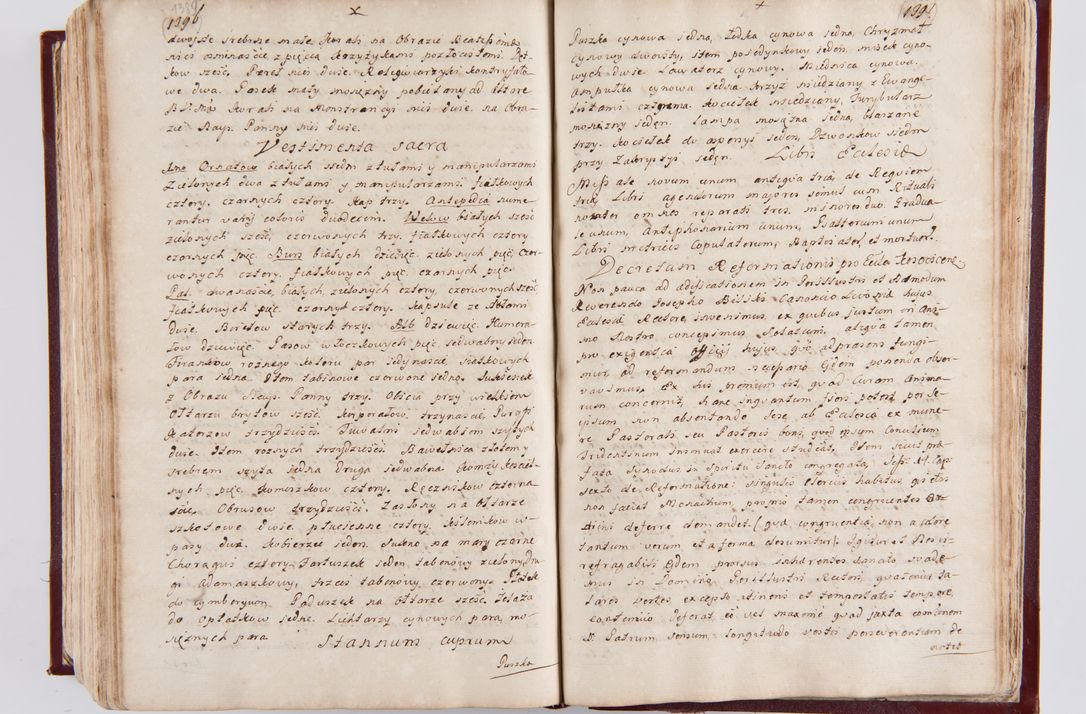 1396
dwojste srebrne małe. Korali na Obrazie Beatissimae
nici osmnaście z pięcią krzyżykami pozłocistemi. Pąt-
kow sześć, Pereł nici dwie. Relquiarzyki konstryfało-
we dwa. Pasek mały mosiężny pobielany ad Altare
B. V. Mae Korali na Monstrancyi nici dwie. na Obra-
zie Nays. Panny nici dwie.
Vestimenta sacra
Ornatow białych siedm z stułami y manipularzami
Zielonych dwa z stułami y manipularzami. fiałkowych
cztery. czarnych cztery. Kap trzy. Antepedia nume-
rantur varij coloris duodecim. Welow białych sześć
zielonych sześć, czerwonych trzy. fiałkowych cztery
czarnych pięć. Burs białych dziesięć. zielonych pięć, czer-
wonych cztery. fiałkowych pięć, czarnych pięć.
Pal. dwanaście, białych, zielonych cztery, czerwonych sześć,
fiałkowych pięć. czarnych cztery. Kapsule ze
dwie. Biretow starych trzy. Alb dziewięć. Humera-
łow dziewięć. Pasow włoczkowych pięć, iedwabny ieden
Firankow roznego koloru par iedynaście, fiałkowych
para iedna. Item tabinowe czerwone iedne. Sukienek
z Obrazu Nays. Panny trzy. Obicia przy wielkiem
Ołtarzu brytow sześć. Korporałow trzynaście, Puryfi-
katerzow trzydzieści. Tuwalni iedwabiem szytych
dwie. Item roznych trzydzieści. Bawełnica złotem y
srebrem szyta iedna druga iedwabna. Komży kościel-
nych pięć, komeszkow cztery. Ręcznikow czterna-
ście, Obrusow trzydzieści. Zasłony na ołtarze
szkotowe dwie. płocienne cztery. kilimkow w
pasy dwa. Kobierzec ieden. Sukno na mary czarne
Choragwi cztery. Fartuszek ieden tabinowy zielony, dru-
gi adamaszkowy, trzeci tabinowy czerwony.
do cymboryum. Paduszek na ołtarze sześć. Żelaza
do opłatkow iedne. Lichtarzy cynowych para, mo-
siężnych para
Stannum cuprum
Puszka
1396
Puszka cynowa iedna, Łodka cynowa iedna, Chryzmał
cynowy dwoisty, item poiedynkowy ieden. misek cyno-
wych dwie. Lawaterz cynowy. Miednica cynowa.
Ampułka cynowa iedna. Krzyż miedziany z Ewange-
listami czterema. Kociełek miedziany, Turybularz
mosiężny ieden. Lampa mosiężna iedna, blaszane
trzy. Kociełek do ieden, Dzwonkow siedm
przy Zakrystyi ieden. Libri Ecclesiae
Missale novum unum antiqua tria, de Requiem
tria, Libri agendorum majores simul cum Rituali
noviter omnes reparati tres. minores duo. Gradua-
le unum, Antiphonarium unum, Psalterium unum
Libri metrices Copulatorum, Baptisator. et mortuor.
Decretum Reformationis pro Eccla
Non pauca ad aedificationem in Perillustri et Admodum
Reverendo Josepho Bilski Canonico hujus
Ecclesiae Rectore invenimus, ex quibus justum in ani-
mo Nostro concepimus Solatium, aliqua tamen
pro exigentia officij hujus quo ad praesens fungi-
mur, ad reformandum necessario Eidem ponenda obser-
vavimus. Ex his primum est quod curam anima-
rum concernit, hanc inquantum fieri potest per se-
ipsum non absentando sese ab Ecclesia ex mune-
re Pastorali seu Pastoris boni, quod ipsum Concilium
Tridentinum insinuat exercere studeat. Item sicut prae-
fata Synodus in Spiritu Sancto congregata, Sess. 14. Cap.
sexto de Reformatione: singulis Clericis habitus, qui etsi
non faciat Monachum, proprio tamen congruentes Or-
dini deferre demandet. (quae congruentia, non a colore
tantum verum et a forma desumitur) Igitur et Nos ir-
refragabili Eidem prorsus inhaerentes Canoni suade-
mus in Domino Perillustri Rectori, quatenus ta-
lares Vestes excepto itineris et tempestatis tempore,
contentio deferat, eo vel maxime quod juxta communem
S. Patrum sensum, longitudo vestis perseverantiam de
notet